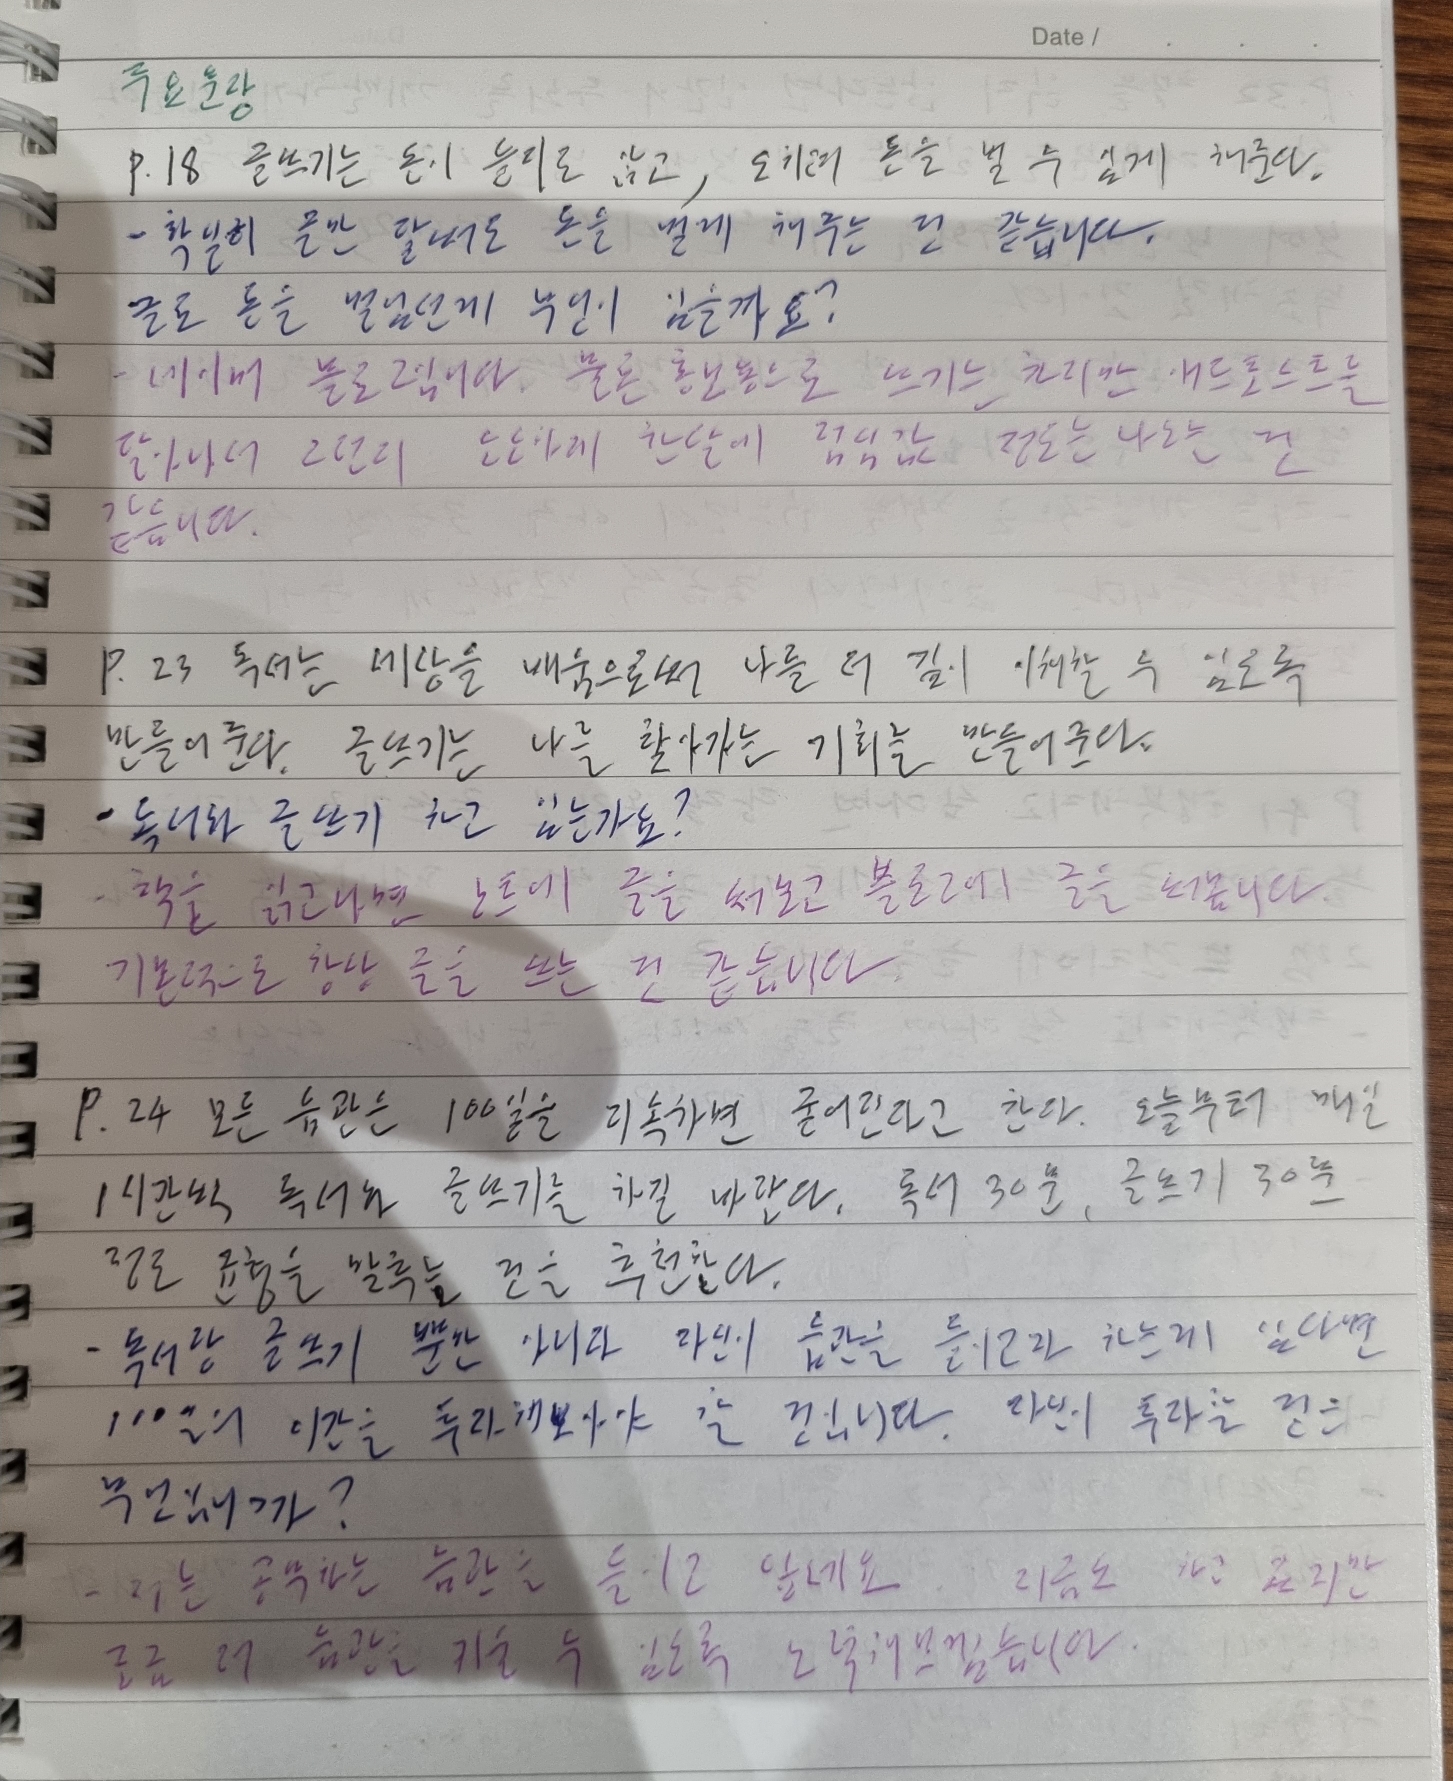 Date / . . .
주요문장
P.18 글쓰기는 돈이 들지도 않고, 오히려 돈을 벌 수 있게 해준다.
- 확실히 글만 잘써도 돈을 벌게 해주는 건 같습니다.
글로 돈을 벌었던게 무엇이 있을까요?
- 네이버 블로그입니다. 물론 홍보용으로 쓰기는 하지만 애드포스트를
달아놔서 그런지 소소하게 한달에 점심값 정도는 나오는 건
같습니다.
P. 23 독서는 세상을 배움으로써 나를 더 깊이 이해할 수 있도록
만들어준다. 글쓰기는 나를 찾아가는 기회를 만들어준다.
- 독서와 글쓰기 하고 있는가요?
- 책을 읽고나면 노트에 글을 써보고 블로그에 글을 써봅니다.
기본적으로 항상 글을 쓰는 건 같습니다.
P. 24 모든 습관은 100일을 지속하면 굳어진다고 한다. 오늘부터 매일
1시간씩 독서와 글쓰기를 하길 바란다. 독서 30분, 글쓰기 30분
정도 균형을 맞추는 것을 추천한다.
- 독서랑 글쓰기 뿐만 아니라 자신이 습관을 들이고자 하는게 있다면
100일의 시간을 투자해보아야 할 것입니다. 자신이 투자할 것은
무엇입니까?
- 저는 공부하는 습관을 들이고 싶네요. 지금도 하고 있지만
조금 더 습관을 키울 수 있도록 노력해보겠습니다.